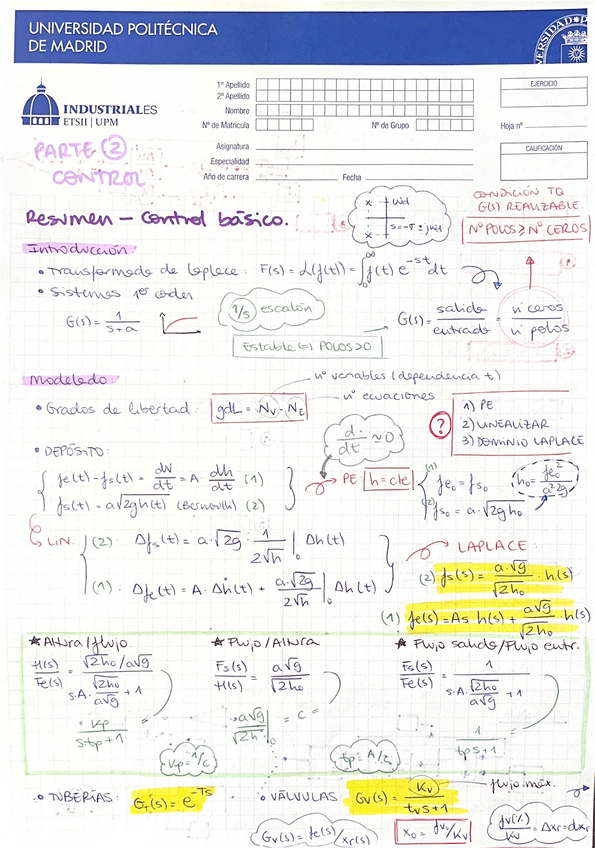 UNIVERSIDAD POLITÉCNICA
DE MADRID
INDUSTRIALES
ETSII | UPM
1º Apellido
2º Apellido
Nombre
Nº de Matrícula
Nº de Grupo
Hoja nº
EJERCICIO
CALIFICACIÓN
Asignatura
Especialidad
Año de carrera
Fecha
PARTE ②
CONTROL
Resumen – Control básico.
x - ωd
x - s = -σ ± jωd
CONDICIÓN TQ
G(s) REALIZABLE
Nº POLOS ≥ Nº CEROS
Introducción
• Transformada de Laplace: F(s) = L(f(t)) = ∫₀^∞ f(t) e^-st dt
• Sistemas 1er orden
G(s) = 1/(s+a)
1/s escalón
Estable (=) POLOS > 0
G(s) = salida/entrada = nº ceros/nº polos
Modelado
nº variables (dependencia t)
• Grados de libertad: gdL = Nv - NE
nº ecuaciones
d·/dt ≈ 0
?
1) PE
2) LINEALIZAR
3) DOMINIO LAPLACE
• DEPÓSITO:
fe(t) - fs(t) = dV/dt = A · dh/dt (1)
fs(t) = a√2gh(t) (Bernoulli) (2)
PE: h = cte
(1) fe₀ = fs₀
(2) fs₀ = a·√2gh₀
h₀ = fe₀²/a²2g
LIN.
(2): Δfs(t) = a·√2g · 1/2√h |₀ Δh(t)
(1): Δfe(t) = A·Δḣ(t) + a·√2g/2√h |₀ Δh(t)
LAPLACE:
(2) fs(s) = a·√g/√2h₀ · h(s)
(1) fe(s) = As h(s) + a√g/√2h₀ h(s)
★ Altura/flujo
H(s)/Fe(s) = (√2h₀/a√g)/(s·A·√2h₀/a√g + 1)
Kp/(s·tp+1) =
Kp = 1/c
★ Flujo/Altura
Fs(s)/H(s) = a√g/√2h₀
a√g/√2h |₀ = c =
★ Flujo salida/Flujo entr.
Fs(s)/Fe(s) = 1/(s·A·√2h₀/a√g + 1)
1/(tps+1)
• TUBERÍAS: Gt(s) = e^-Ts
• VÁLVULAS: Gv(s) = Kv/(tvs+1)
flujo máx.
Gv(s) = fe(s)/xr(s)
x₀ = fv₀/Kv
fv(%)/Kv = Δxr = dxr